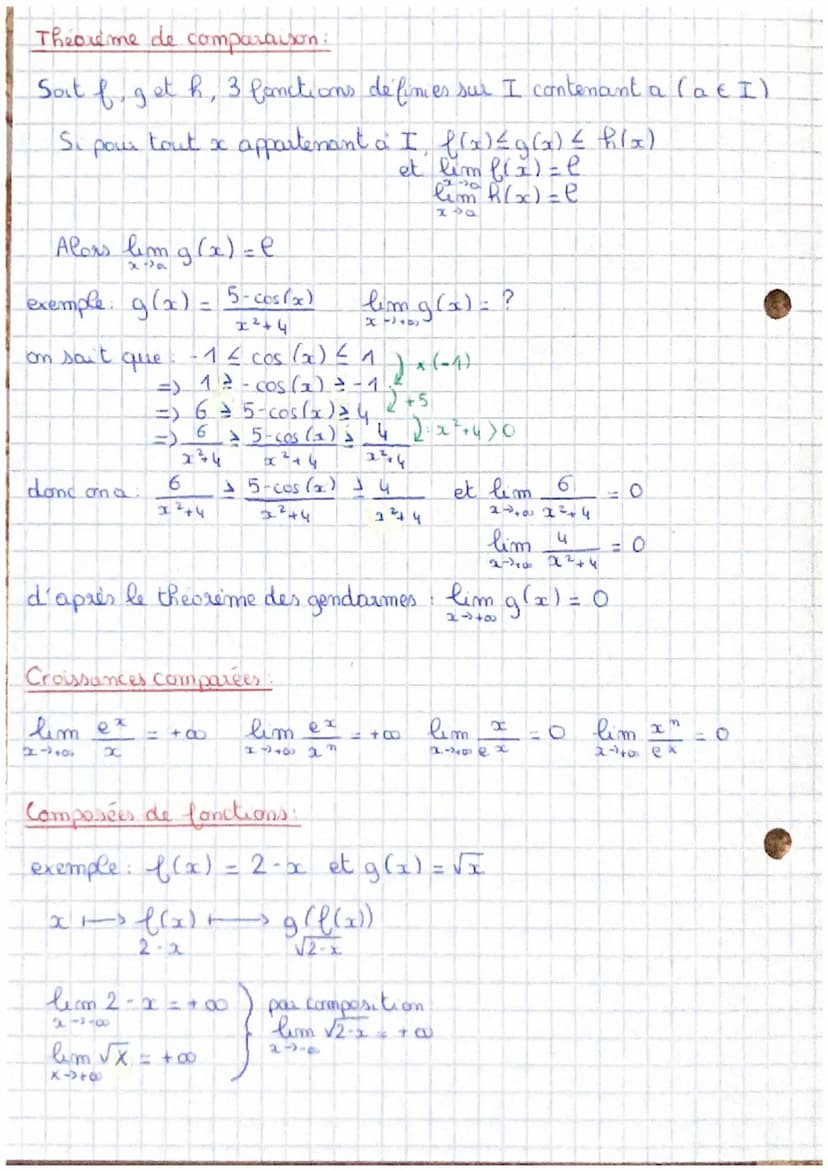 Théorème de comparaison :
Soit f, g et h, 3 fonctions définies sur I contenant a (a ∈ I)
Si pour tout x appartenant à I, f(x) ≤ g(x) ≤ h(x)
et lim f(x) = l
x→a
lim h(x) = l
x→a
Alors lim g(x) = l
x→a
exemple : g(x) = (5-cos(x))/(x²+4) lim g(x) = ?
x→+∞
on sait que : -1 ≤ cos(x) ≤ 1 ×(-1)
=> 1 ≥ -cos(x) ≥ -1 +5
=> 6 ≥ 5-cos(x) ≥ 4 : x²+4 > 0
=> 6/(x²+4) ≥ (5-cos(x))/(x²+4) ≥ 4/(x²+4)
donc on a : 6/(x²+4) ≥ (5-cos(x))/(x²+4) ≥ 4/(x²+4) et lim 6/(x²+4) = 0
x→+∞
lim 4/(x²+4) = 0
x→+∞
d'après le théorème des gendarmes : lim g(x) = 0
x→+∞
Croissances comparées :
lim e^x/x = +∞ lim e^x/x^n = +∞ lim x/e^x = 0 lim x^n/e^x = 0
x→+∞ x→+∞ x→+∞ x→+∞
Composées de fonctions :
exemple : f(x) = 2-x et g(x) = √x
x ↦ f(x) ↦ g(f(x))
2-x √2-x
lim 2-x = +∞ } par composition
x→-∞ lim √2-x = +∞
lim √X = +∞ x→-∞
X→+∞